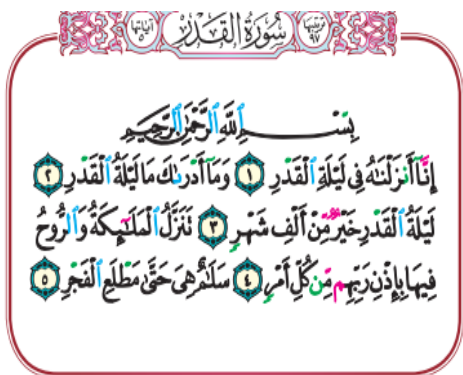 ترتيبها ٩٧ سُورَةُ القَدْرِ آياتها ٥
بِسْمِ ٱللَّهِ ٱلرَّحْمَٰنِ ٱلرَّحِيمِ
إِنَّآ أَنزَلْنَٰهُ فِى لَيْلَةِ ٱلْقَدْرِ ١ وَمَآ أَدْرَىٰكَ مَا لَيْلَةُ ٱلْقَدْرِ ٢
لَيْلَةُ ٱلْقَدْرِ خَيْرٌ مِّنْ أَلْفِ شَهْرٍ ٣ تَنَزَّلُ ٱلْمَلَٰٓئِكَةُ وَٱلرُّوحُ
فِيهَا بِإِذْنِ رَبِّهِم مِّن كُلِّ أَمْرٍ ٤ سَلَٰمٌ هِىَ حَتَّىٰ مَطْلَعِ ٱلْفَجْرِ ٥